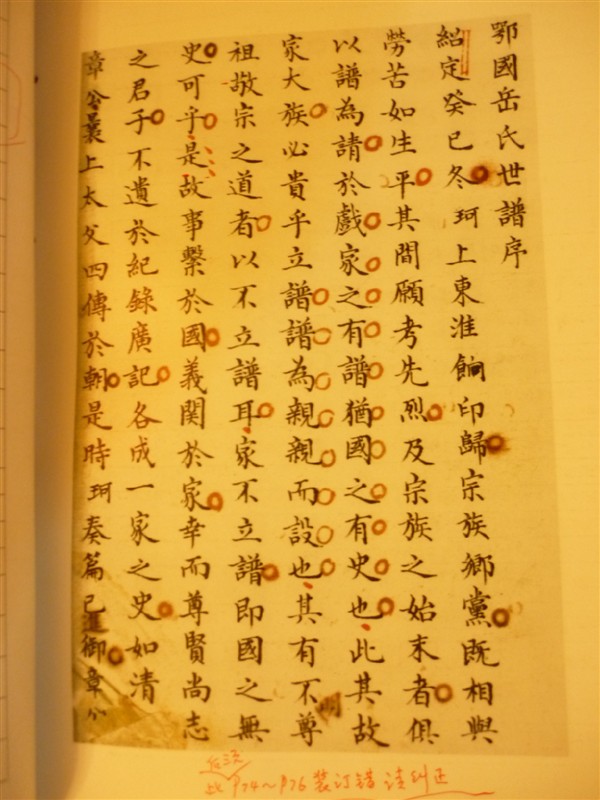 鄂國岳氏世譜序
紹定癸巳冬珂上東淮餉印歸宗族鄉黨既相與
勞苦如生平其間願考先烈及宗族之始末者俱
以譜為請於戲家之有譜猶國之有史也此其故
家大族必貴乎立譜譜為親親而設也其有不尊
祖敬宗之道者以不立譜耳家不立譜即國之無
史可乎是故事繫於國義関於家幸而尊賢尚志
之君子不遺於紀錄廣記各成一家之史如清
章公曩上太父四傳於朝是時珂奏篇已進御章公
P74~P76装订错 请纠正